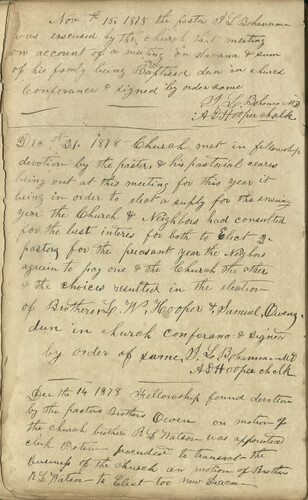 Nov th 15 1878 the pastor T L Bohannan
was excused by the church last meeting
on account of a meeting on Savana & sum
of his family being Baptised don in church
Conference & signed by order some
T. L. Bohanan Md
A D Hooper Chalk
Dec th 21. 1878 Church met in fellowship
devotion by the pastor & his pastorial ceares
being out at this meeting for this year it
being in order to elect a supply for the ensuing
year the Church & Neighbors had consulted
for the best interes for both to Elect 2-
pastors for the preasant year the Neighors
agrein to pay one & the Church the other
& the choices resulted in the election
of Brothers L. W. Hooper & Samuel, Owens
dun in church conforanc & signed
by order of same, T. L. Bohannan - Md
A D Hooper chalk
Dec the 14 1878 Fellowship found devotion
by the pastors Brothers Owen on motion of
the church brother R L Watson was appointed
clerk Protem proceeded to transact the
Buisness of the Church on motion of Brothers
R L Watson to Elect too new Deacons